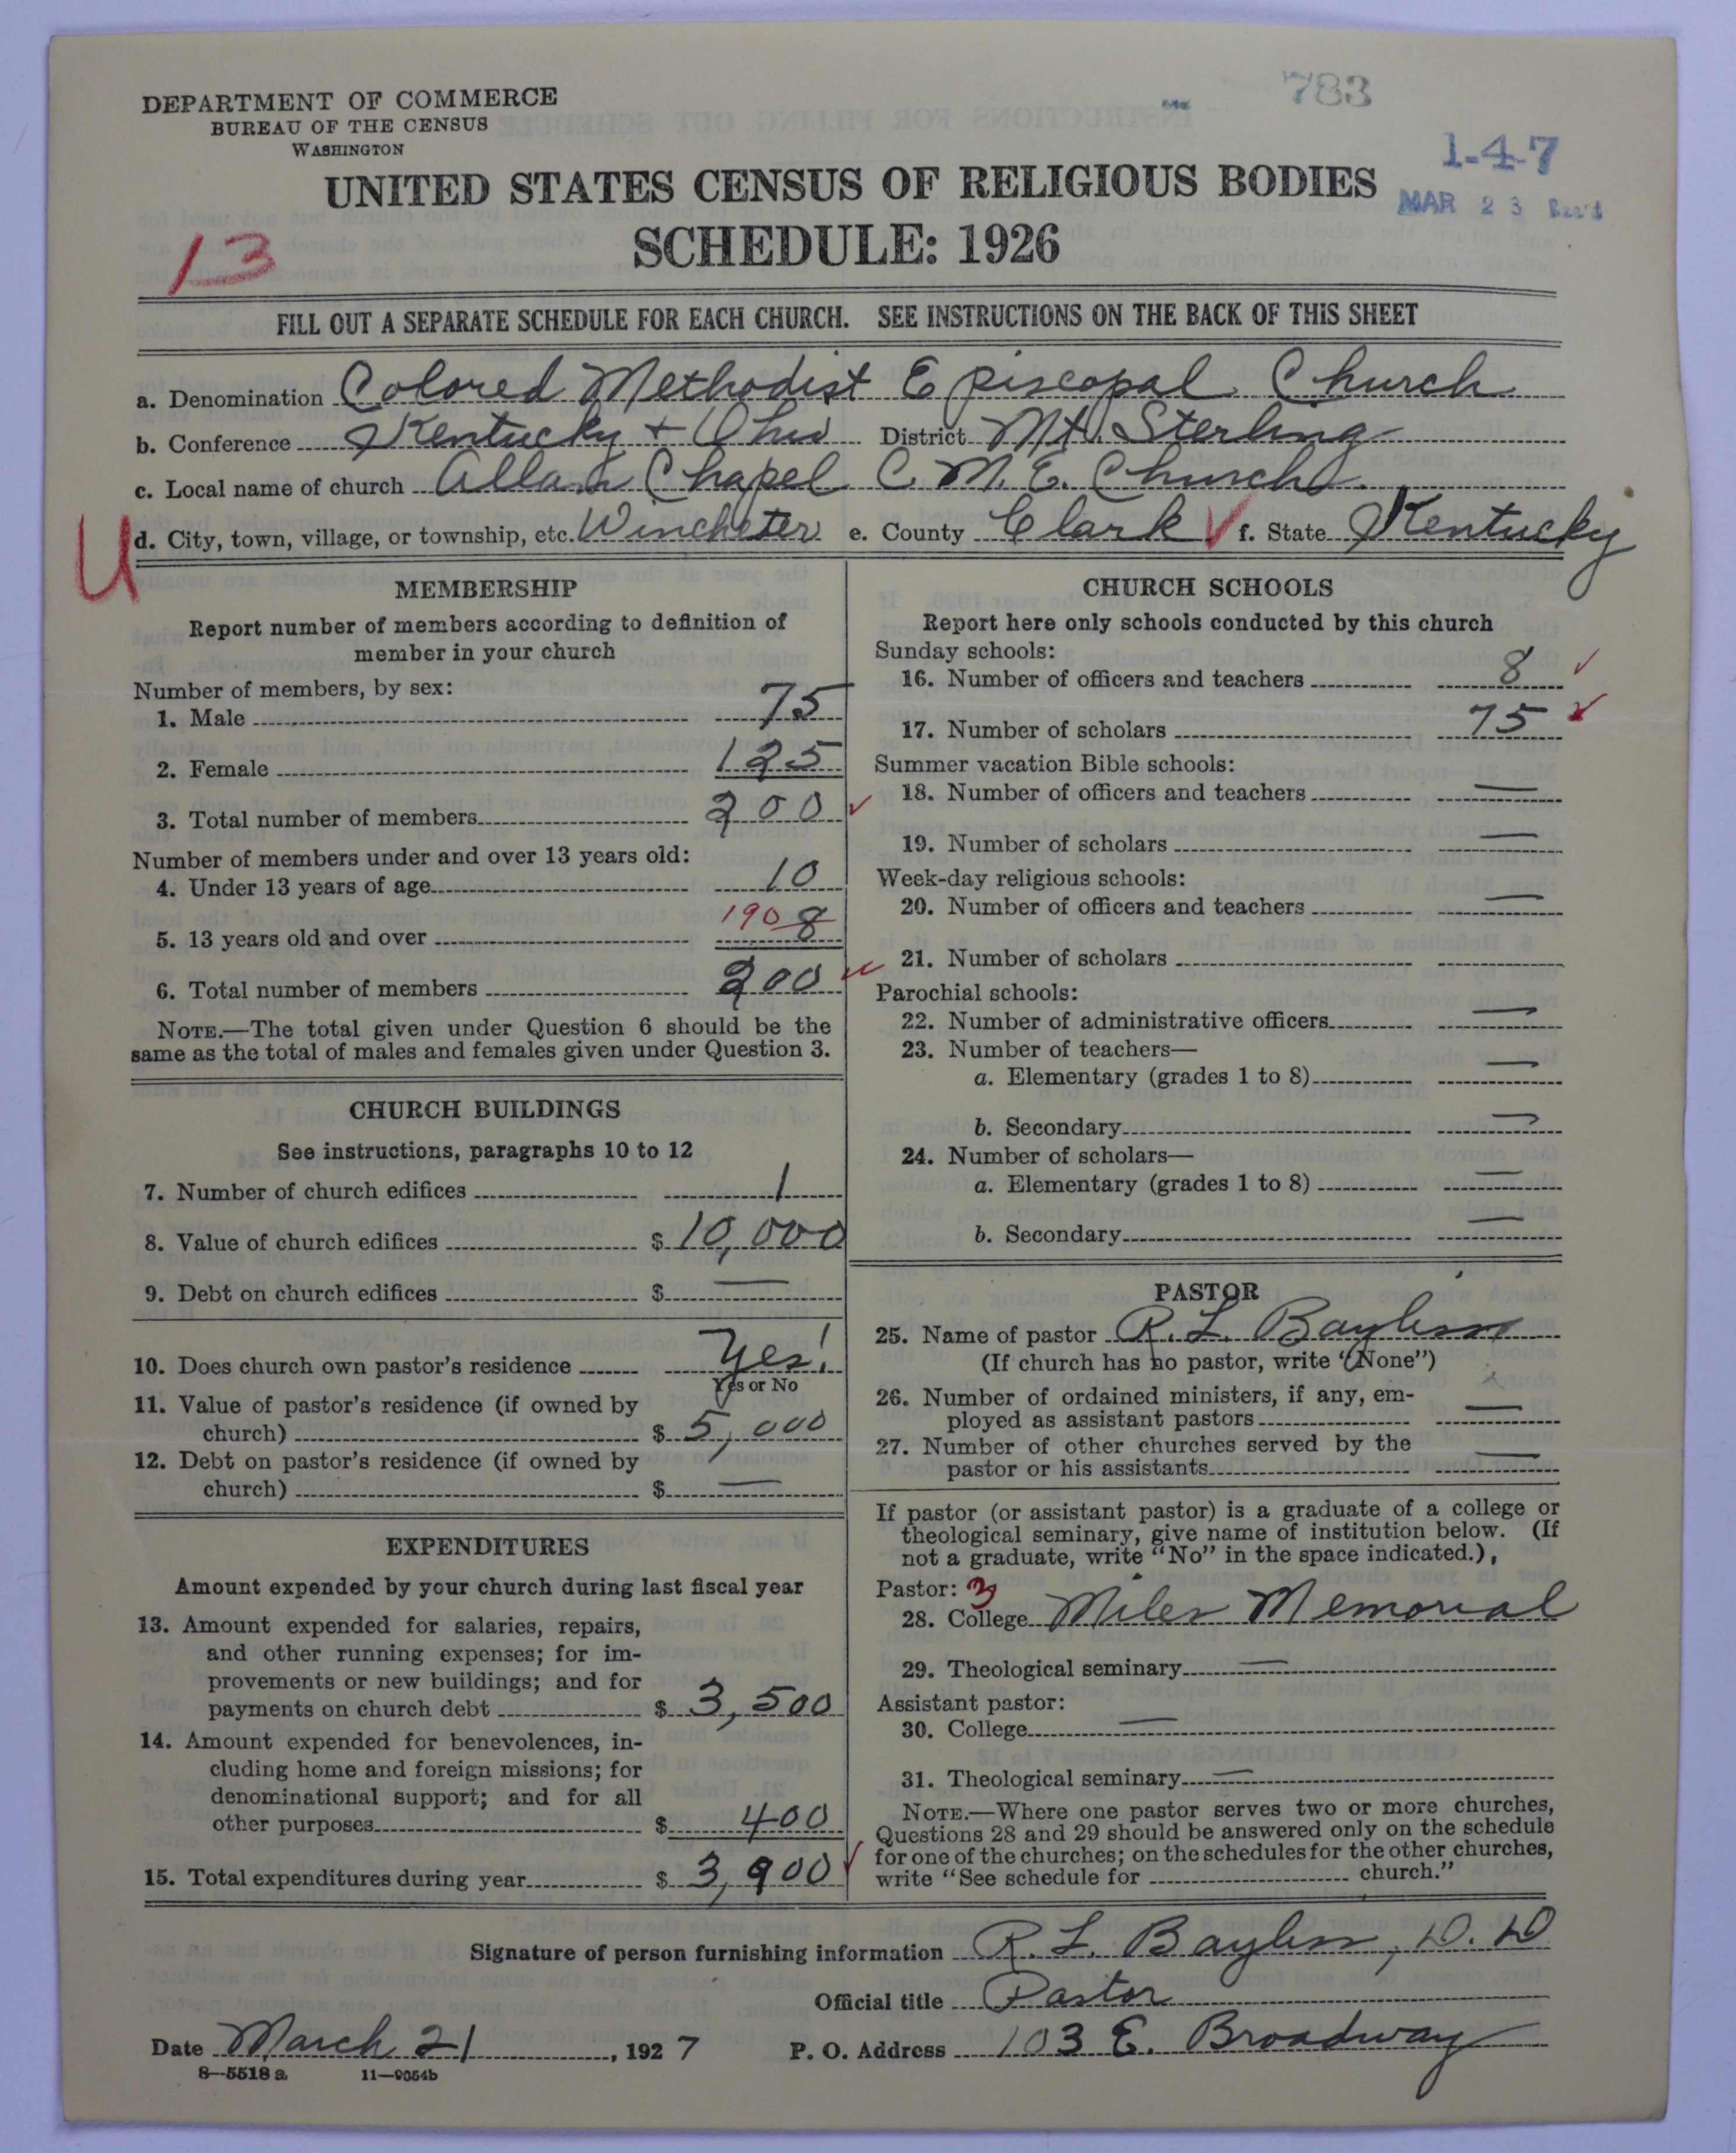 783
DEPARTMENT OF COMMERCE
BUREAU OF THE CENSUS
WASHINGTON
1-4-7
MAR 23 Rec'd
UNITED STATES CENSUS OF RELIGIOUS BODIES
SCHEDULE: 1926
13
FILL OUT A SEPARATE SCHEDULE FOR EACH CHURCH. SEE INSTRUCTIONS ON THE BACK OF THIS SHEET
a. Denomination Colored Methodist Episcopal Church
b. Conference Kentucky + Ohio District Mt. Sterling
c. Local name of church Allan Chapel C. M. E. Church
U
d. City, town, village, or township, etc. Winchester e. County Clark f. State Kentucky
MEMBERSHIP
Report number of members according to definition of
member in your church
Number of members, by sex:
1. Male 75
2. Female 125
3. Total number of members 200
Number of members under and over 13 years old:
4. Under 13 years of age 10
5. 13 years old and over 190 8
6. Total number of members 200
NOTE.—The total given under Question 6 should be the
same as the total of males and females given under Question 3.
CHURCH BUILDINGS
See instructions, paragraphs 10 to 12
7. Number of church edifices 1
8. Value of church edifices $ 10,000
9. Debt on church edifices $ —
10. Does church own pastor's residence Yes!
Yes or No
11. Value of pastor's residence (if owned by
church) $ 5,000
12. Debt on pastor's residence (if owned by
church) $ —
EXPENDITURES
Amount expended by your church during last fiscal year
13. Amount expended for salaries, repairs,
and other running expenses; for im-
provements or new buildings; and for
payments on church debt $ 3,500
14. Amount expended for benevolences, in-
cluding home and foreign missions; for
denominational support; and for all
other purposes $ 400
15. Total expenditures during year $ 3,900
CHURCH SCHOOLS
Report here only schools conducted by this church
Sunday schools:
16. Number of officers and teachers 8
17. Number of scholars 75
Summer vacation Bible schools:
18. Number of officers and teachers —
19. Number of scholars —
Week-day religious schools:
20. Number of officers and teachers —
21. Number of scholars —
Parochial schools:
22. Number of administrative officers —
23. Number of teachers—
a. Elementary (grades 1 to 8) —
b. Secondary —
24. Number of scholars—
a. Elementary (grades 1 to 8) —
b. Secondary —
PASTOR
25. Name of pastor R. L. Bayliss
(If church has no pastor, write "None")
26. Number of ordained ministers, if any, em-
ployed as assistant pastors —
27. Number of other churches served by the
pastor or his assistants —
If pastor (or assistant pastor) is a graduate of a college or
theological seminary, give name of institution below. (If
not a graduate, write "No" in the space indicated.)
Pastor: 3
28. College Miles Memorial
29. Theological seminary —
Assistant pastor:
30. College —
31. Theological seminary —
NOTE.—Where one pastor serves two or more churches,
Questions 28 and 29 should be answered only on the schedule
for one of the churches; on the schedules for the other churches,
write "See schedule for church."
Signature of person furnishing information R. L. Bayliss, D. D
Official title Pastor
Date March 21, 1927 P. O. Address 103 E. Broadway
8—5518 a 11—9054b